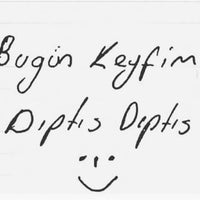 Bugün Keyfim
Dıptıs Dıptıs